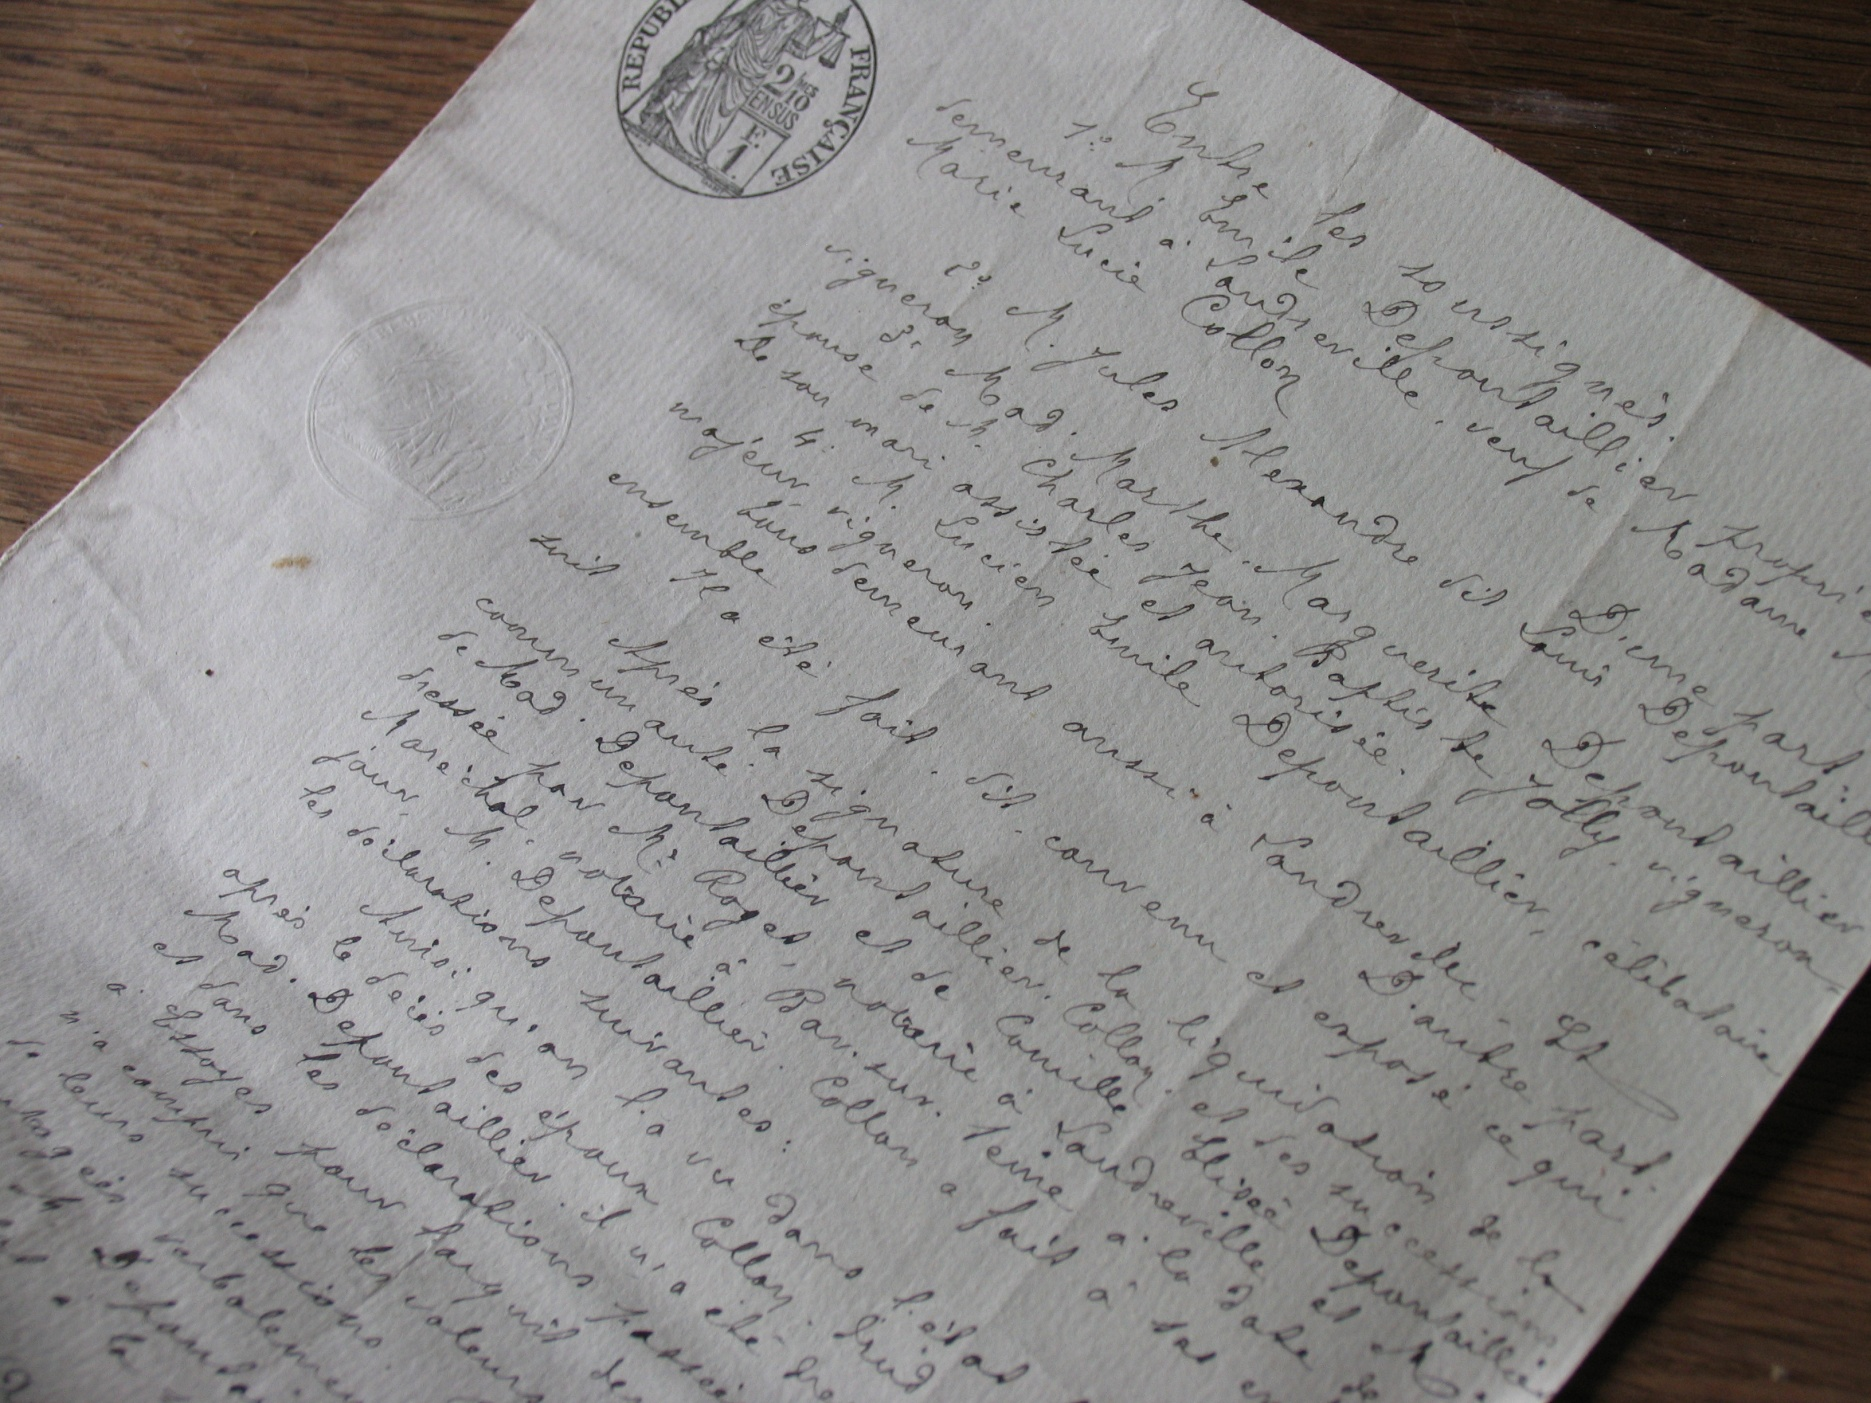 REPUBLI
FRANÇAISE
2/10 MES
EN SUS
F. 1.
Entre les soussignés.
1º. M. Emile Depontaillier propri
demeurant à Landreville. veuf de Madame
Marie Lucie Collon
D'une part
2º. M. Jules Alexandre dit Louis Depontaill
vigneron
3º. Mad. Marthe Marguerite Depontaillier
épouse de M. Charles Jean Baptiste Jolly. vigneron
de son mari assistée et autorisée.
4º. M. Lucien Emile Depontaillier, célibataire
majeur vigneron
tous demeurant aussi à Landreville Et
ensemble D'autre part.
Il a été fait. dit. convenu et exposé ce qui
suit
Après la signature de la liquidation de la
communauté. Depontaillier. Collon. et des successions
de Mad. Depontaillier et de Camille Elisée Depontaillie
dressée par Me Roger, notaire à Landreville et Me
Maréchal. notaire à Bar. sur. Seine à la date de
jour M. Depontaillier. Collon a fait à ses en
les déclarations suivantes:
Ainsi qu'on l'a vu dans l'état
après le décès des époux Collon
Mad. Depontaillier. il n'a été
et dans les déclarations passée
à Essoyes pour l'acquit de
n'a compris que les valeurs
de leurs successions.
verbalement
Deponta
à la